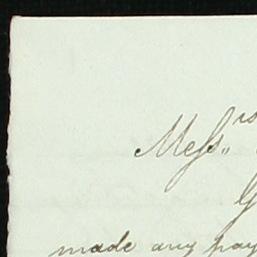 Mess.rs
G
made any pay